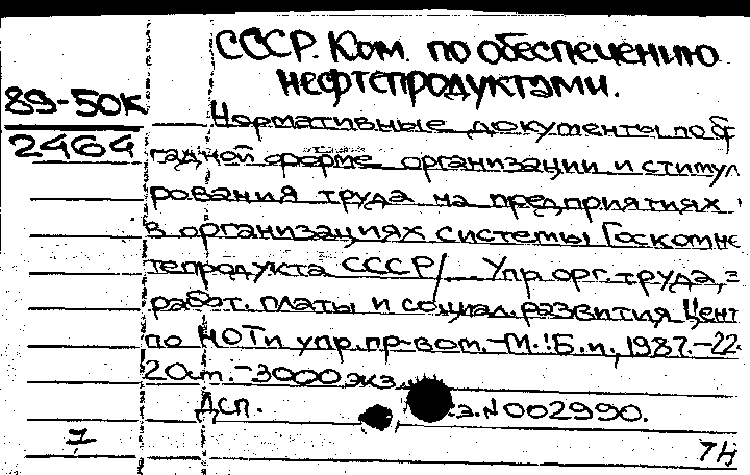 СССР. Ком. по обеспечению
нефтепродуктами.
89-50к
2464
Нормативные документы по б
гадной форме организации и стимул
рования труда на предприятиях
в организациях системы Госкомне
тепродукта СССР/ Упр. орг. труда, з
работ. платы и социал. развития Цент
по НОТ и упр. пр-вом.-М.:Б.и., 1987.-22.
20см.-3000экз.
Дсп. з.N002990.
1